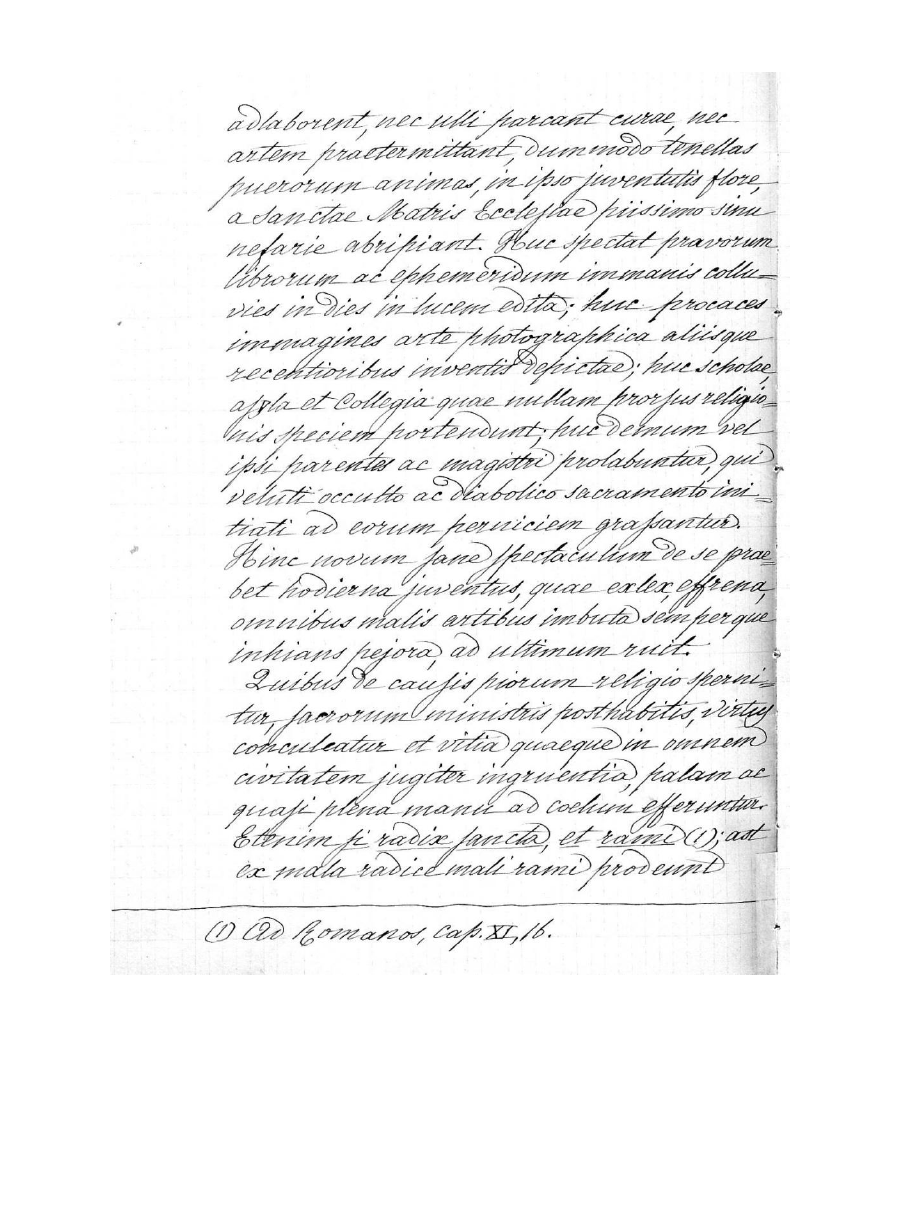 adlaborent, nec ulli parcant curae, nec
artem praetermittant, dummodo tenellas
puerorum animas, in ipso juventutis flore,
a Sanctae Matris Ecclesiae piissimo sinu
nefarie abripiant. Huc spectat pravorum
librorum ac ephemeridum immanis collu=
vies in dies in lucem edita; huc procaces
immagines arte photographica aliisque
recentioribus inventis depictae; huc scholae,
asyla et Collegia quae nullam prorsus religio=
nis speciem portendunt; huc demum vel
ipsi parentes ac magistri prolabuntur, qui
veluti occulto ac diabolico sacramento ini=
tiati ad eorum perniciem grassantur.
Hinc novum sane spectaculum de se prae=
bet hodierna juventus, quae exlex, effrena,
omnibus malis artibus imbuta semperque
inhians pejora, ad ultimum ruit.
Quibus de causis piorum religio sperni=
tur, sacrorum ministris posthabitis, virtus
conculcatur et vitia quaeque in omnem
civitatem jugiter ingruentia, palam ac
quasi plena manu ad coelum efferuntur.
Etenim si radix sancta, et rami (1); ast
ex mala radice mali rami prodeunt
(1) Ad Romanos, cap. XI, 16.